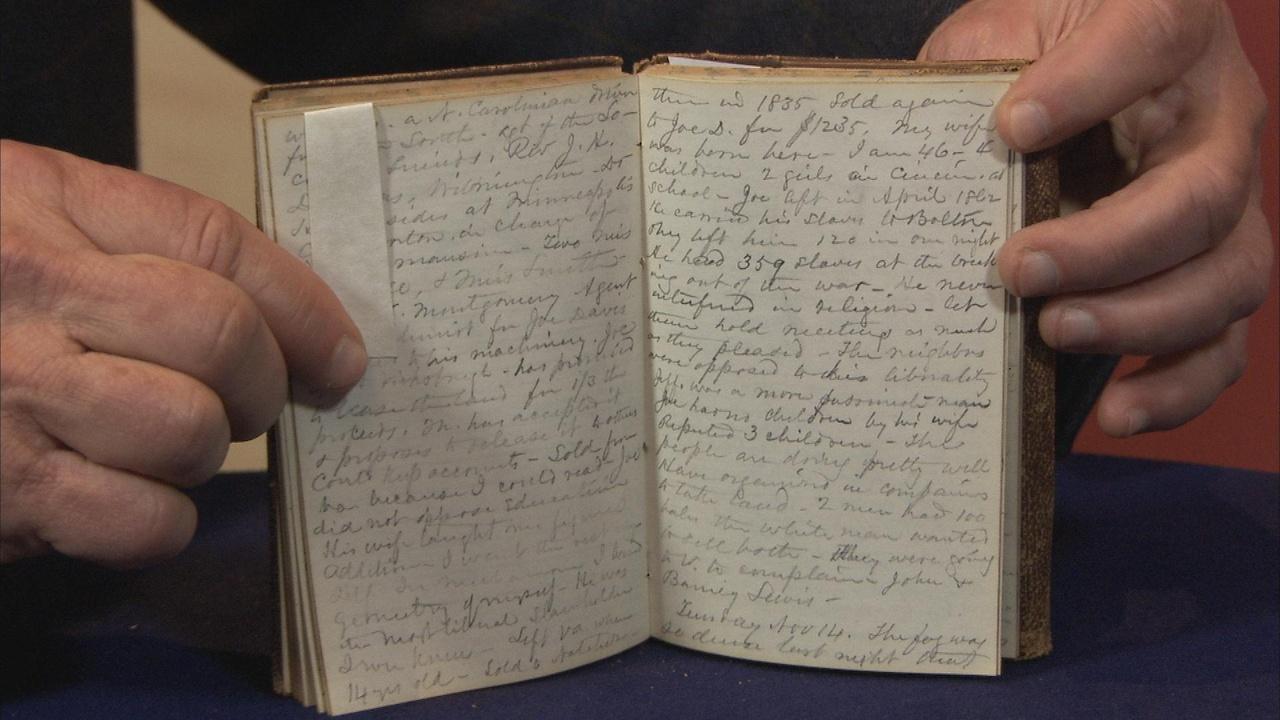 a N. Carolinian
South - out of the So-
Friends, Rev J. H.
Wilmington - Dr
sides at Minneapolis
in charge of
mansion - Two Miss
& Miss Smith
Montgomery Agent
for Joe Davis
to his machinery. Joe
has promised
to lease the land for 1/3 the
proceeds. Mr. has accepted it
& proposes to release it to others
Could keep accounts - Sold for
because I could read - Joe
did not oppose education
His wife taught me figures
Addition I went the rest
I had
geometry by myself - He was
the most liberal Slaveholder
I ever knew - Left Va. when
14 yrs old - Sold to
then in 1835 Sold again
to Joe D. for $1235. My wife
was born here - I am 46 - 4
children 2 girls in Cincin. at
school - Joe left in April 1862
He carried his slaves to Bolton
they left him 120 in one night
He had 359 slaves at the break
ing out of the war - He never
interfered in religion - let
them hold meeting as much
as they pleased - The neighbors
were opposed to this liberality
Jeff. was a more passionate man
Joe has no children by his wife
Reputed 3 children - The
people are doing pretty well
Have organized in companies
to take land - 2 men had 100
bales the white man wanted
to sell both - They were going
to V. to complain - John &
Barney Lewis -
Tuesday Nov 14. The fog was
so dense last night that